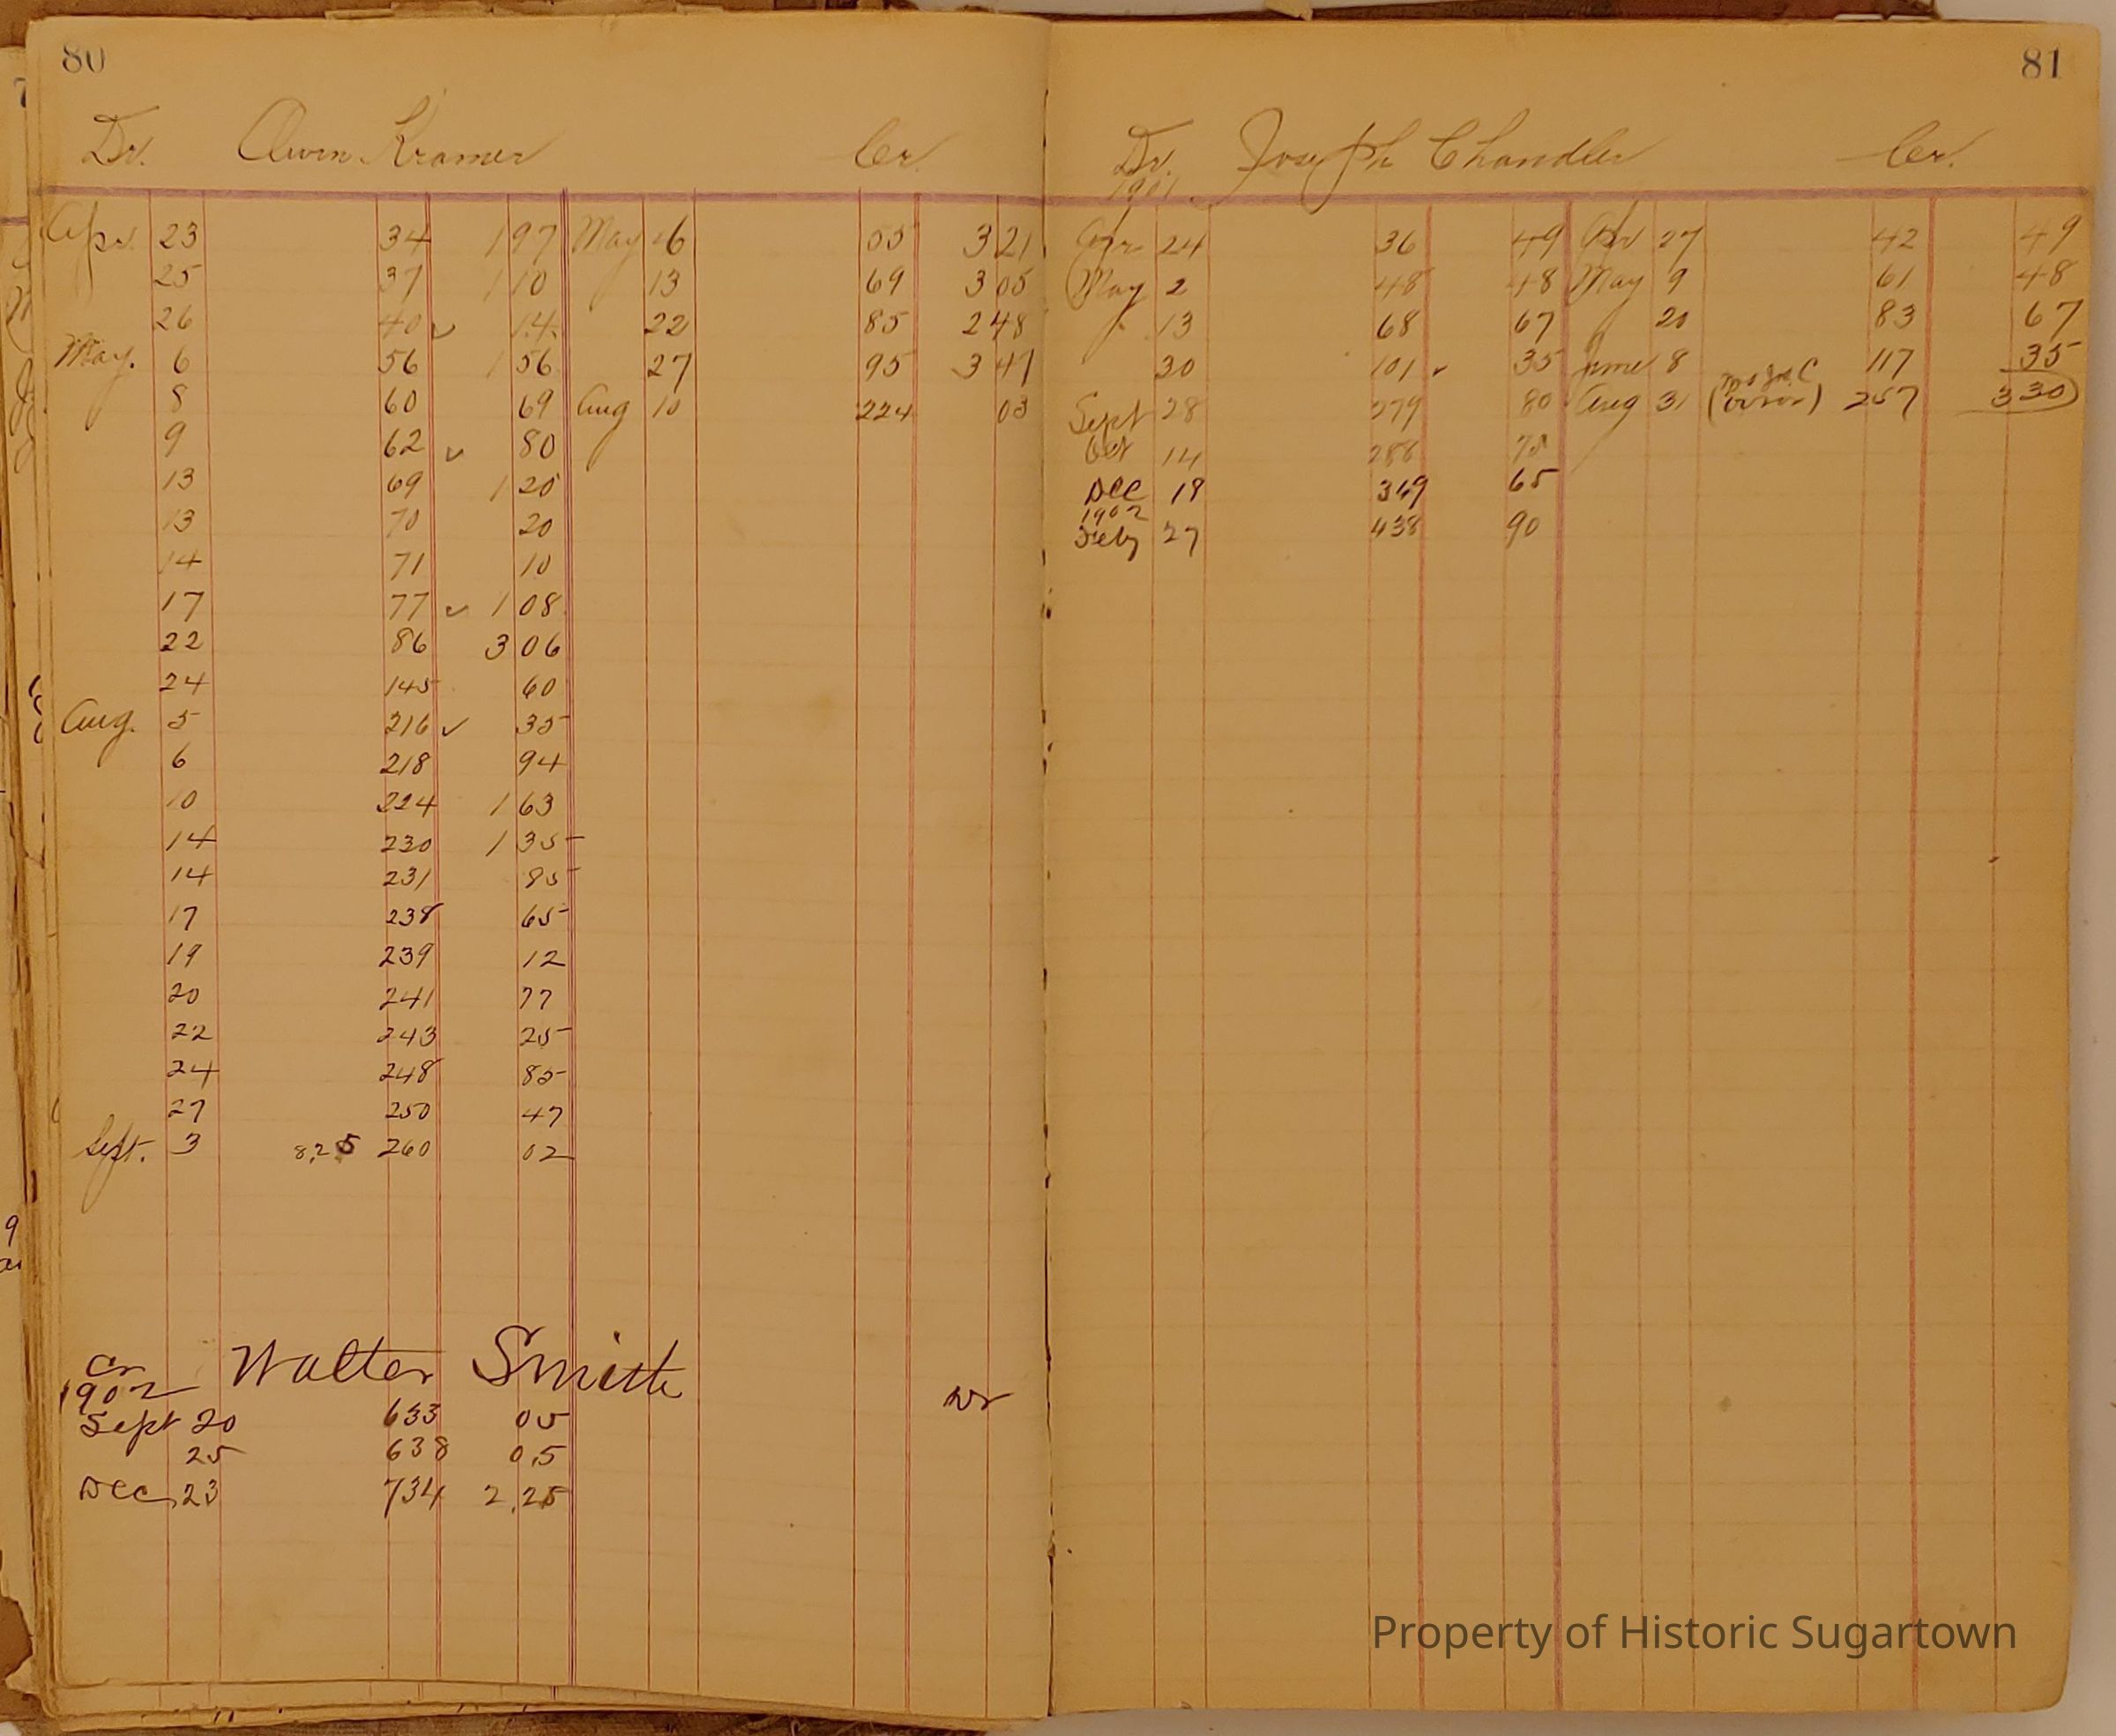 80
Dr. Owen Kramer Cr.
Apr. 23 34 197 May 6 55 321
25 37 110 13 69 305
26 40 ✓ 14 22 85 248
May. 6 56 156 27 95 341
8 60 69 Aug 10 224 03
9 62 ✓ 80
13 69 120
13 70 20
14 71 10
17 77 ✓ 108
22 86 306
24 145 60
Aug. 5 216 ✓ 35
6 218 94
10 224 163
14 230 135
14 231 95
17 238 65
19 239 12
20 241 77
22 243 25
24 248 85
27 250 47
Sept. 3 8,25 260 02
Cr Walter Smith Dr
1902
Sept 20 633 05
25 638 0,5
Dec, 23 734 2,25
81
Dr. Joseph Chandler Cr.
1901
Apr 24 36 49 Apr 27 42 49
May 2 48 48 May 9 61 48
13 68 67 20 83 67
30 101 ✓ 35 June 8 117 35
Sept 28 279 80 Aug 31 (error) 257 330
Oct 14 286
Dec 18 349 65
1902
Feby 27 438 90
Property of Historic Sugartown